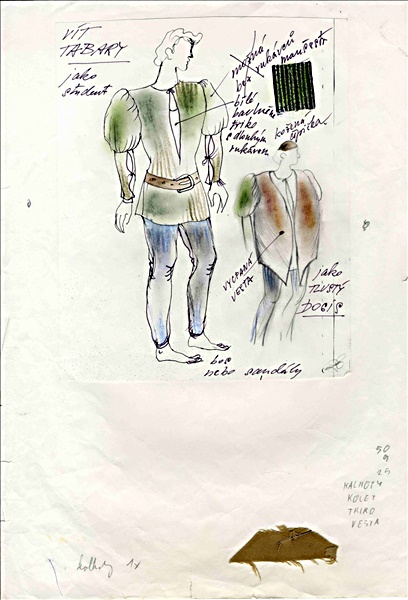 VÍT
TABARY
jako
student
možná
bez rukávců
manšestr
bílé
bavlněné
triko
s dlouhým
rukávem
kožená
čepička
VYCPANÁ
VESTA
jako
TLUSTÝ
DOCIS
bos
nebo sandály
50
9
25
KALHOTY
KOLET
TRIKO
VESTA
kalhoty 1x